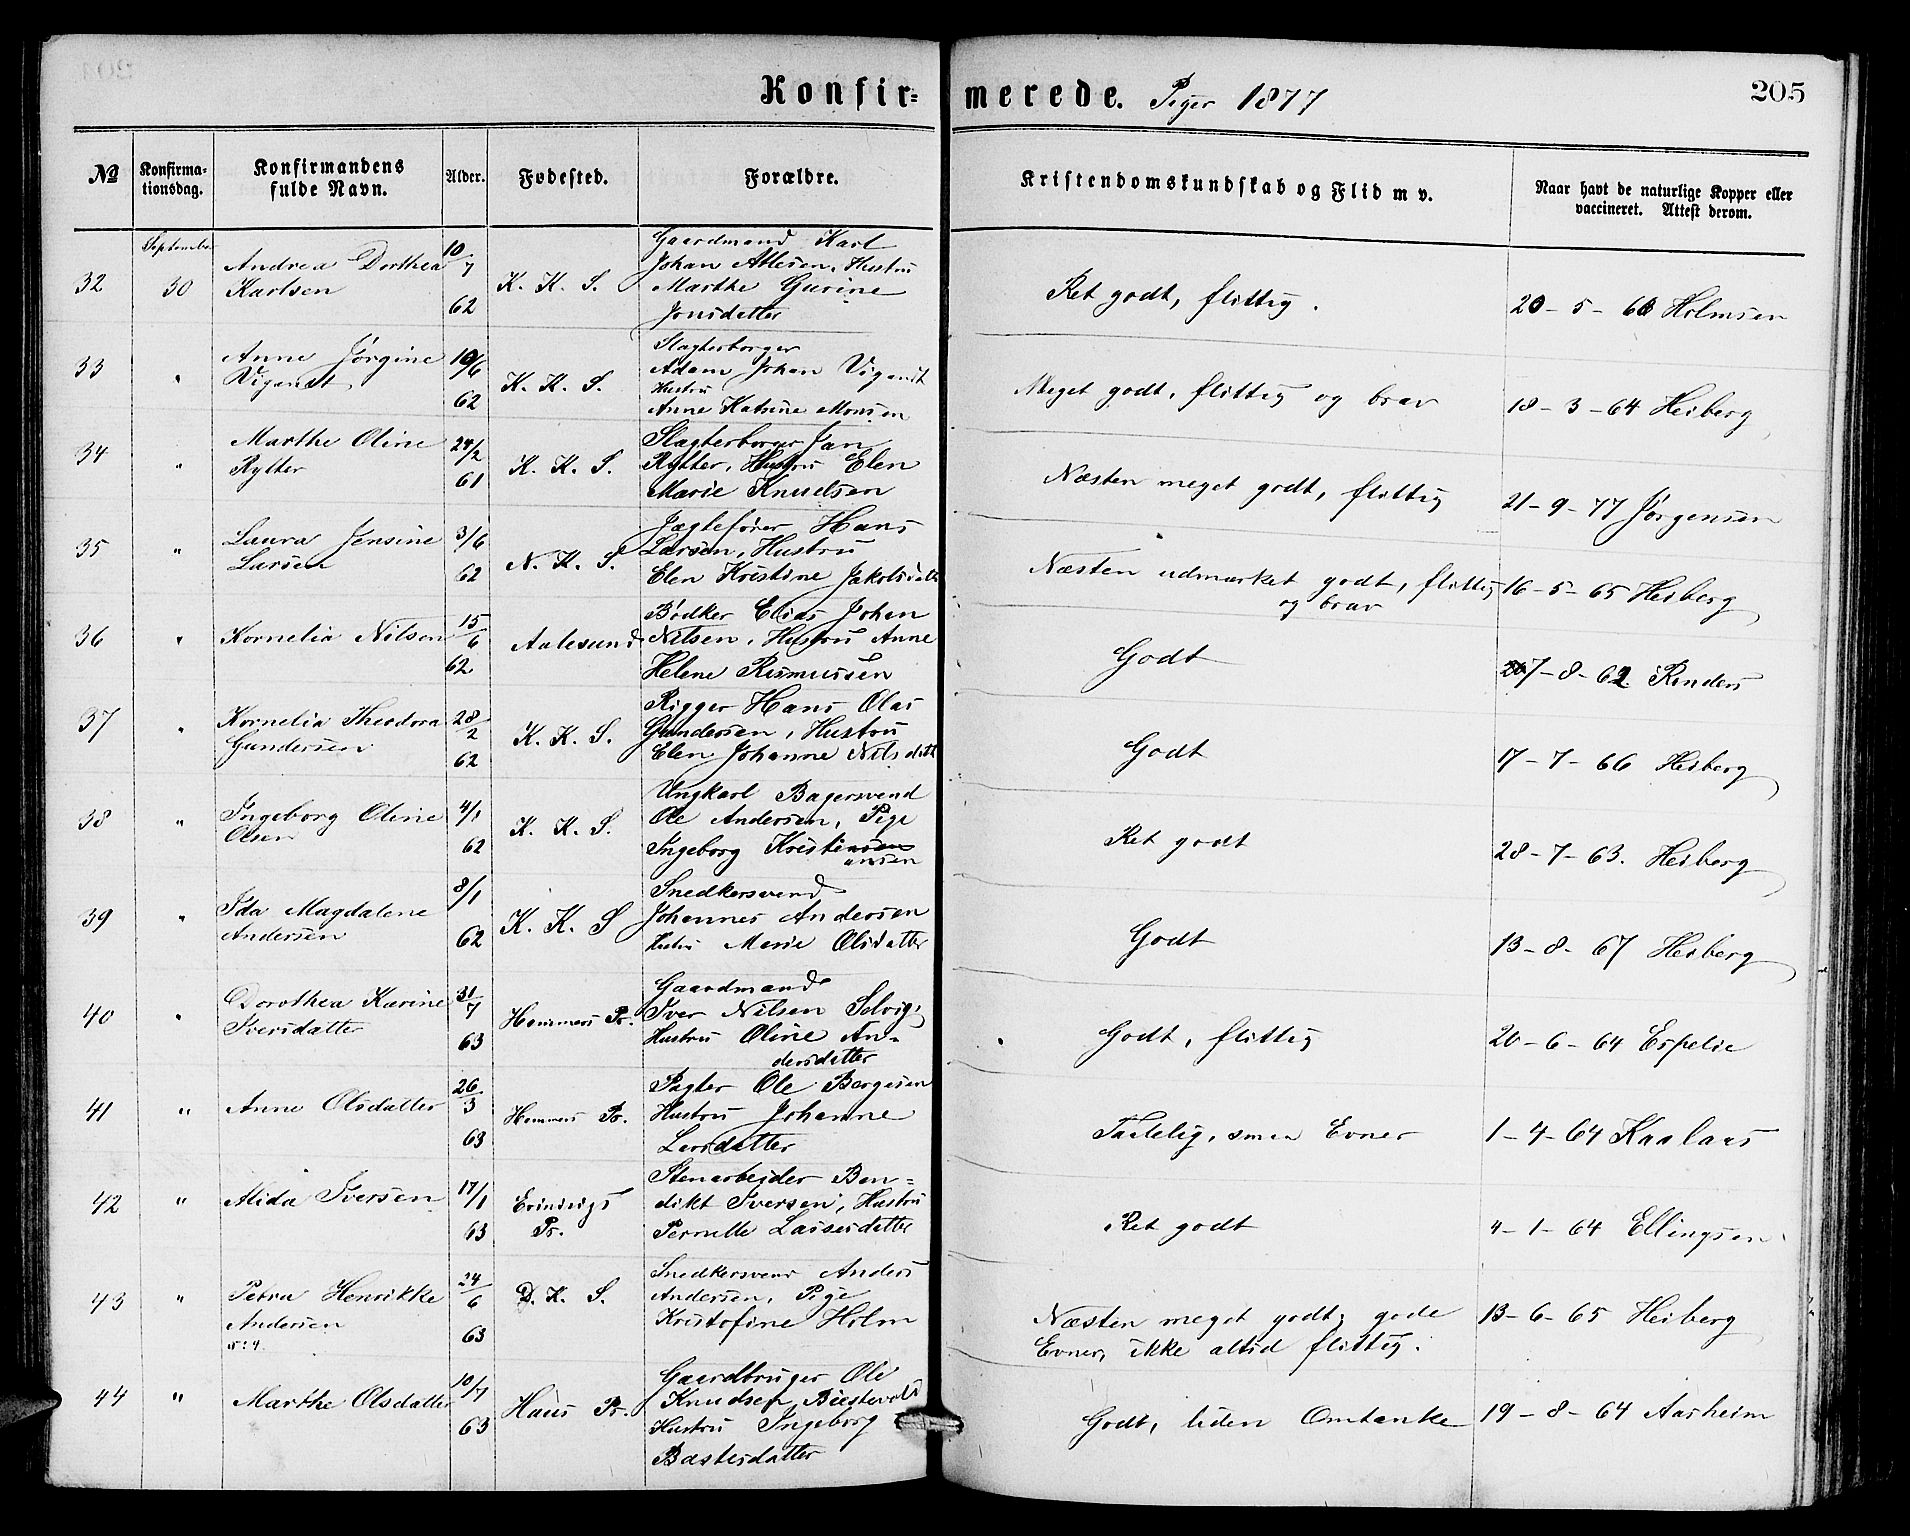 Konfir= merede. Piger 1877
205
No
Konfirma-
tionsdag.
Konfirmandens
fulde Navn.
Alder.
Fødested.
Forældre.
Kristendomskundskab og Flid m v.
Naar havt de naturlige Kopper eller
vaccineret. Attest derom.
September
32 30 Andrea Dorthea Karlsen 10/7 62 K. K. S.
Gaardmand Karl
Johan Attesen, Hustru
Marthe Gurine
Jonsdatter
Ret godt, flittig. 20-5-68 Holmsen
33 " Anne Jørgine Vigandt 10/6 62 K. K. S.
Slagterborger
Adam Johan Vigandt
Hustru
Anne Katrine Monsen
Meget godt, flittig og brav 18-3-64 Heiberg
34 " Marthe Oline Rytter 24/2 61 K. K. S.
Slagterborger Jan
Rytter, Hustru Elen
Marie Knudsen
Næsten meget godt, flittig 21-9-77 Jørgensen
35 " Laura Jensine Larsen 3/6 62 N. K. S.
Jægtefører Hans
Larsen, Hustru
Elen Kristine Jakobsdatt
Næsten udmærket godt, flittig
og brav 16-5-65 Heiberg
36 " Kornelia Nilsen 15/6 62 Aalesund
Bødker Elias Johan
Nilsen, Hustru Anne
Helene Rasmussen
Godt 7-8-62 Randers
37 " Kornelia Theodora Gundersen 28/2 62 K. K. S.
Rigger Hans Olai
Gundersen, Hustru
Elen Johanne Nilsdatt
Godt 17-7-66 Heiberg
38 " Ingeborg Oline Olsen 4/1 62 K. K. S.
Ungkarl Bagersvend
Ole Andersen, Pige
Ingeborg Kristiansen
ansen
Ret godt 28-7-63. Heiberg
39 " Ida Magdalene Andersen 8/1 62 K. K. S
Snedkersvend
Johannes Andersen
Hustru Marie Olsdatter
Godt 13-8-67 Heiberg
40 " Dorothea Karine Iversdatter 31/7 63 Hammers Pr.
Gaardmand
Iver Nilsen Selvig,
Hustru Oline An-
dersdatter
Godt, flittig 20-6-64 Espelie
41 " Anne Olsdatter 26/3 63 Hammers Pr.
Pagter Ole Børgesen
Hustru Johanne
Larsdatter
Taalelig, smaa Evner 1-4-64 Kaalaas
42 " Alida Iversen 17/1 63 Evindvigs Pr.
Stenarbeider Ben=
dikt Iversen, Hustru
Pernille Lassesdatter
Ret godt 4-1-64 Ellingsen
43 " Petra Henrikke Andersen 24/6 63 D. K. S.
5:4.
Snedkersvend Anders
Andersen, Pige
Kristofine Holm
Næsten meget godt, gode
Evner, ikke altid flittig. 13-6-65 Heiberg
44 " Marthe Olsdatter 10/7 63 Haus Pr.
Gaardbruger Ole
Knudsen
Hustru Ingeborg
Bastesdatter
Godt, liden Omtanke 19-8-64 Aasheim